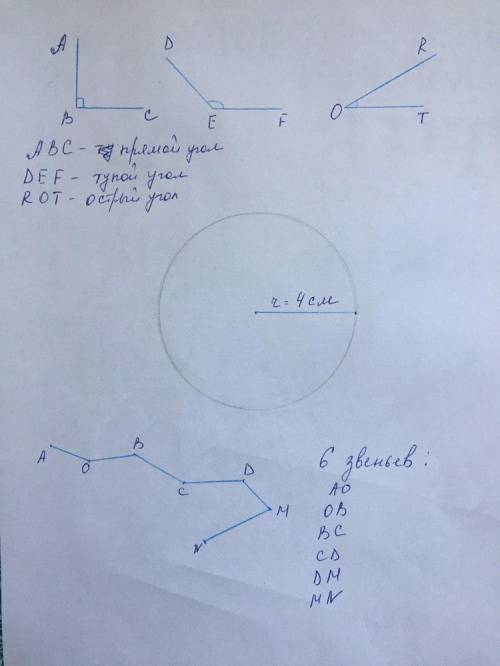 A B C
D E F
R O T
ABC - прямой угол
DEF - тупой угол
ROT - острый угол
r = 4 см
A O B C D M N
6 звеньев:
AO
OB
BC
CD
DM
MN